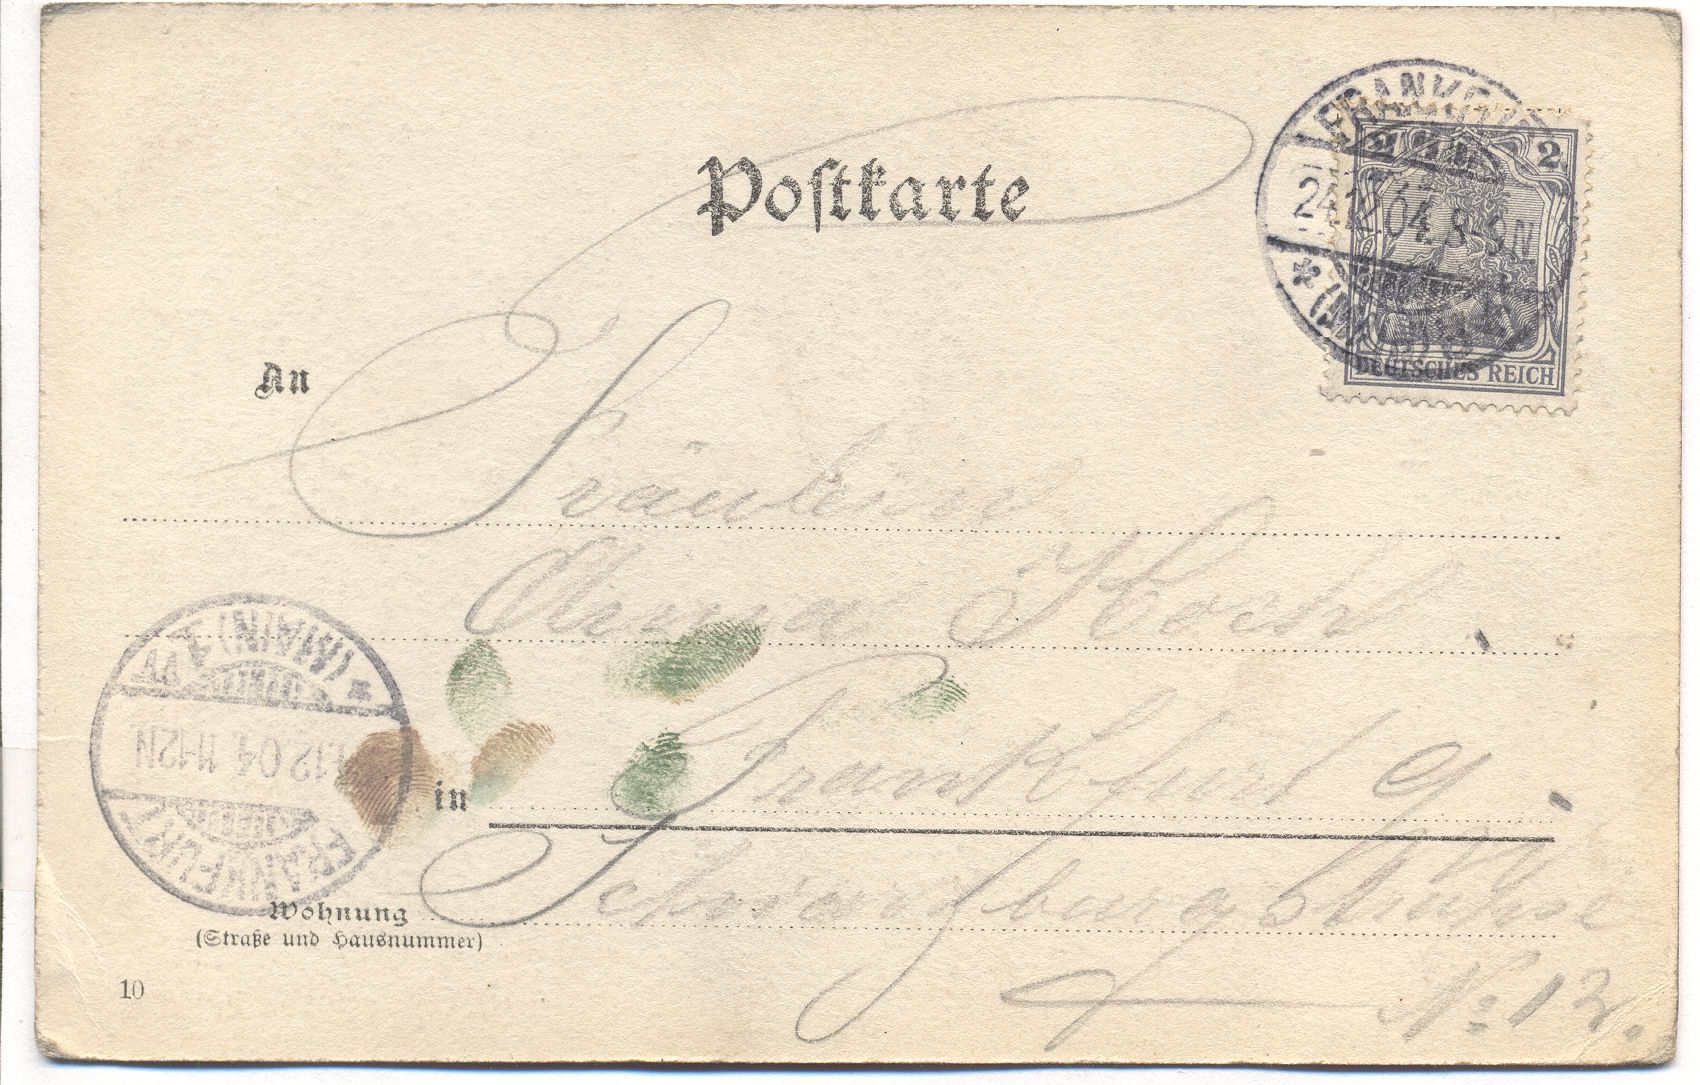 Postkarte
FRANKFURT
24.12.04. 8-9N
* (MAIN)
2
DEUTSCHES REICH
An
Fräulein
Anna Koch
in Frankfurt a/M
Wohnung
(Straße und Hausnummer)
No 12.
FRANKFURT
12.04. 11-12N
* (MAIN) 1
10